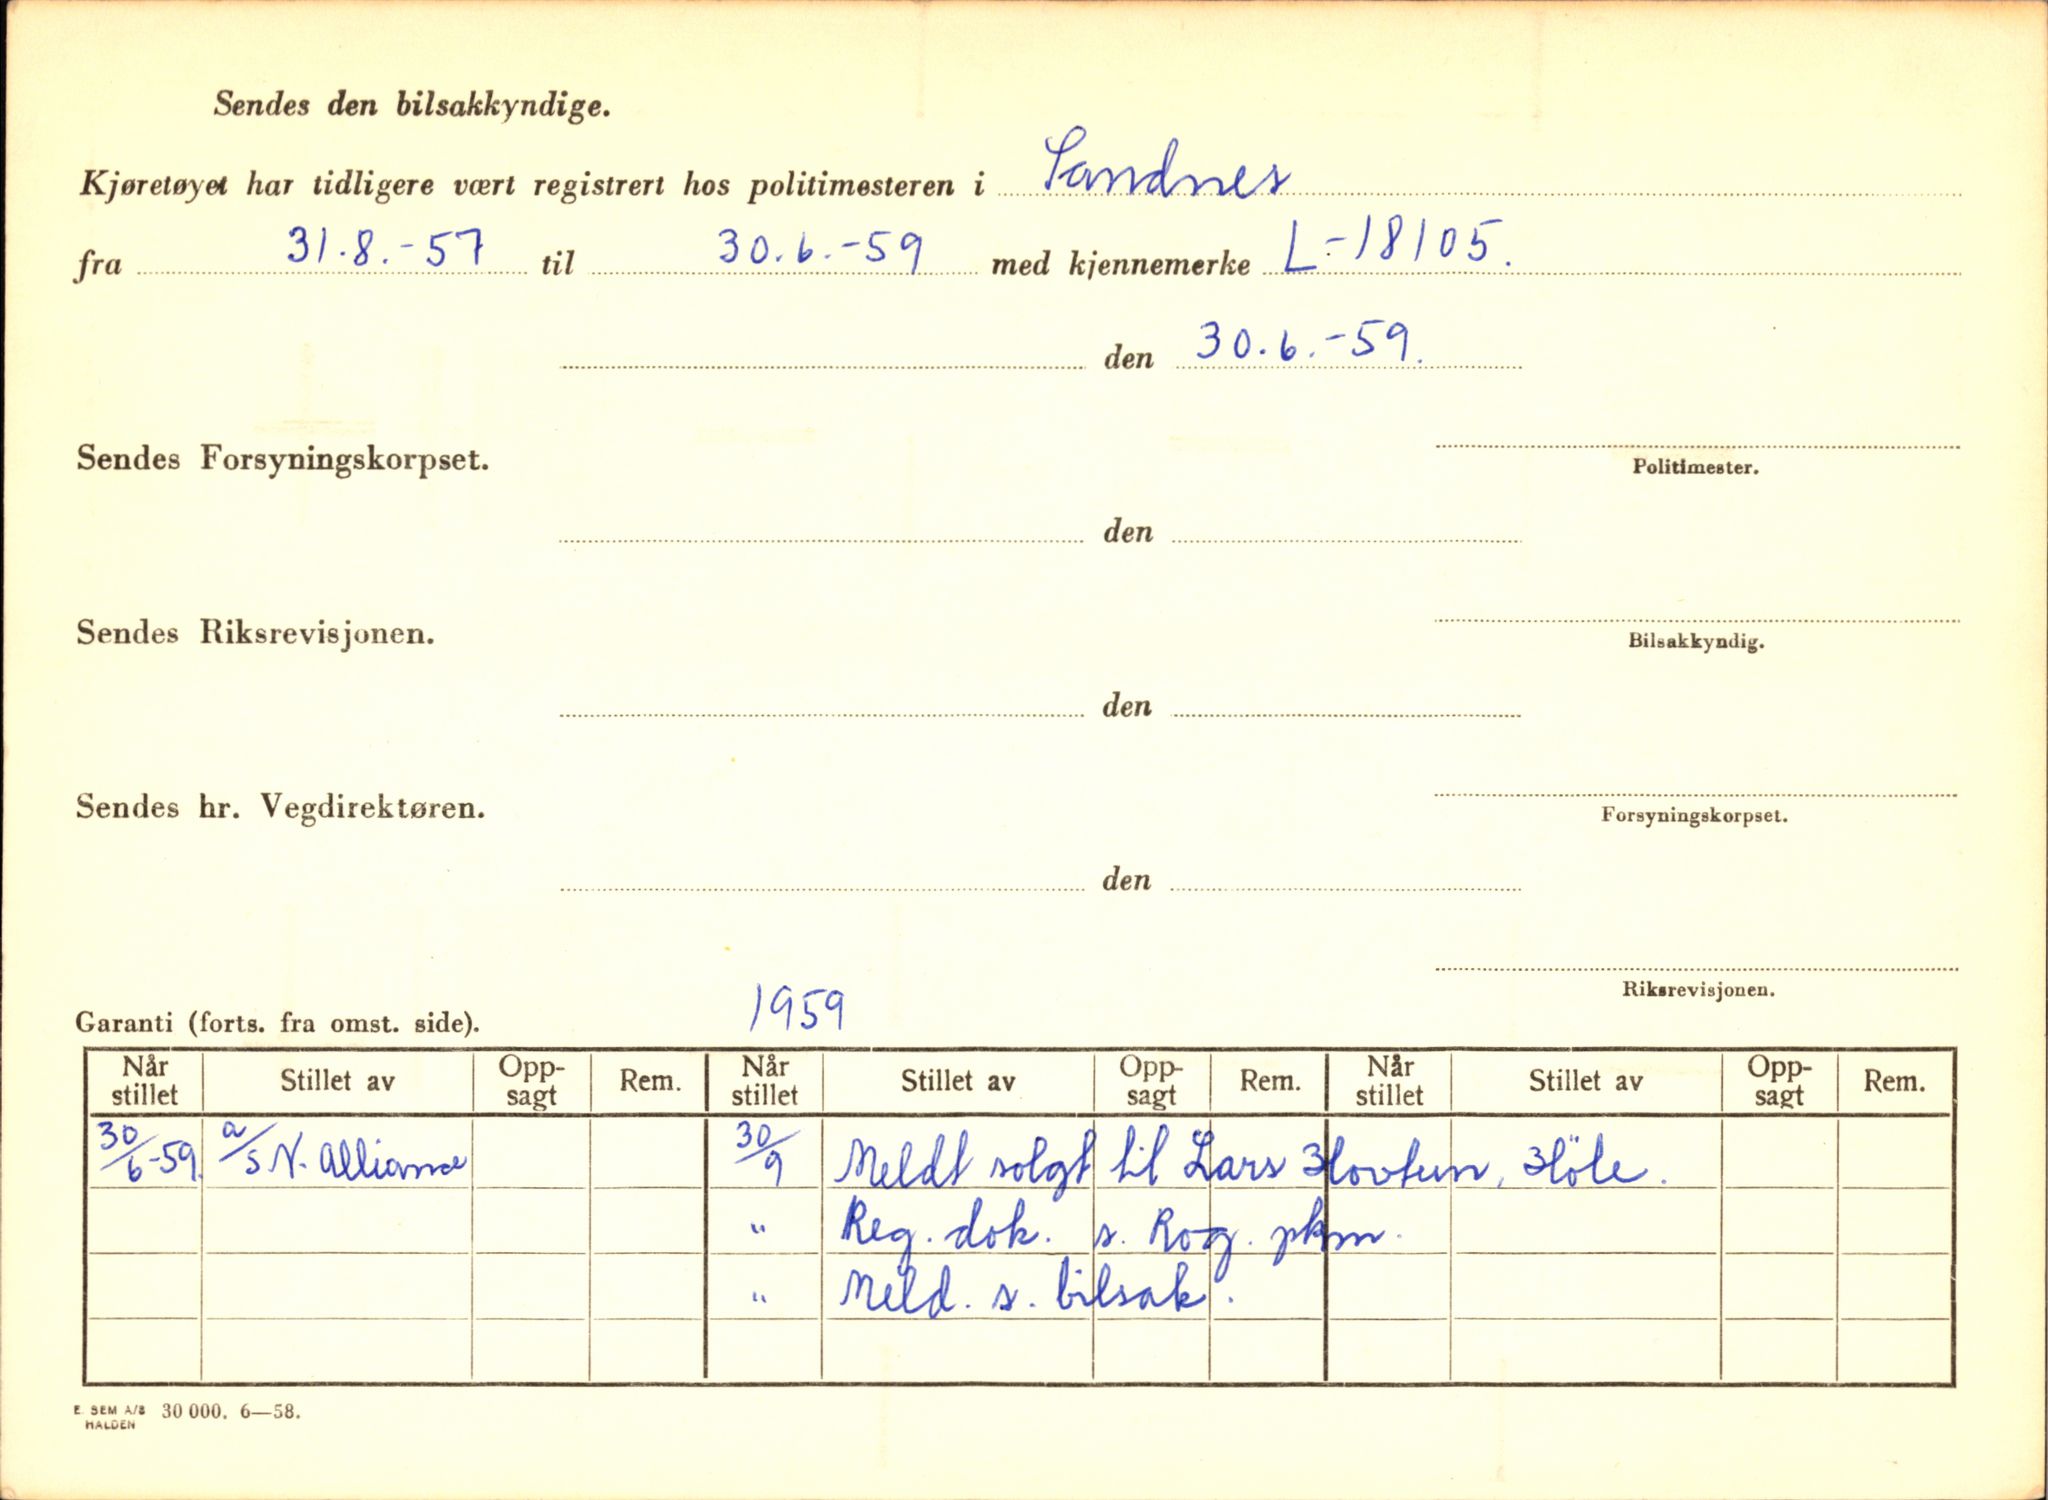 Sendes den bilsakkyndige.
Kjøretøyet har tidligere vært registrert hos politimesteren i Sandnes
fra 31.8.-57 til 30.6.-59 med kjennemerke L-18105.
den 30.6.-59.
Sendes Forsyningskorpset.
Politimester.
den
Sendes Riksrevisjonen.
Bilsakkyndig.
den
Sendes hr. Vegdirektøren.
Forsyningskorpset.
den
Riksrevisjonen.
Garanti (forts. fra omst. side). 1959
Når stillet Stillet av Opp-sagt Rem. Når stillet Stillet av Opp-sagt Rem. Når stillet Stillet av Opp-sagt Rem.
30/6-59. a/s N. Alliance 30/9 Meldt solgt til Lars Hovtun, Höle.
" Reg. dok. s. Rog. pkm.
" Meld. s. bilsak.
E. SEM A/S HALDEN 30 000. 6—58.